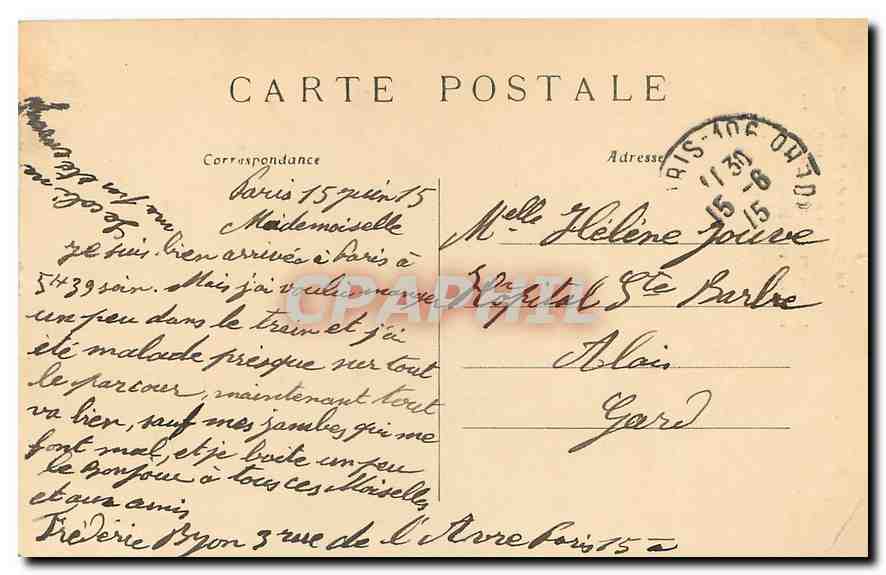 CARTE POSTALE
Correspondance
Adresse
Paris 15 juin 15
Mademoiselle
Je suis bien arrivée à Paris à
5h39 soir. Mais j'ai voulu manger
un peu dans le train et j'ai
été malade presque sur tout
le parcour, maintenant tout
va bien, sauf mes jambes qui me
font mal, et je boite un peu
le Bonjour à tous ces Moiselles
et aux amis
Frédéric Byon 3 rue de l'Avre Paris 15 à
Melle Hélène Jouve
Hopital Ste Barbe
Alais
Gard
PARIS-106
11 30
15 -6
15
CPAPHIL